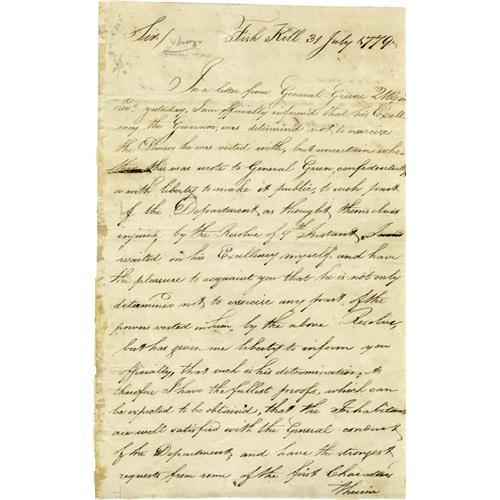 Sir/ Fish Kill 31 July 1779
In a letter from General Greene
yesterday, I am officially informd that his Excell
ency the Governor, was determind not, to exercise
the Powers he was vested with, but uncertain whe
this was wrote to General Green confidential,
or with liberty to make it public, to such part
of the Department, as thought themselves
injured, by the Resolve of 9th Instant, I
waited on his Excellency myself, and have
the pleasure to acquaint you that he is not only
determined not, to exercise any part, of the
powers vested in him, by the above Resolve,
but has given me liberty to inform you
officially, that such is his determination; As
therefore I have the fullest proofs, which can
be expected to be obtained, that the Inhabitans
are well satisfied with the General conduct
of the Department, and have the strongest
requests from some of the first Characters
therein